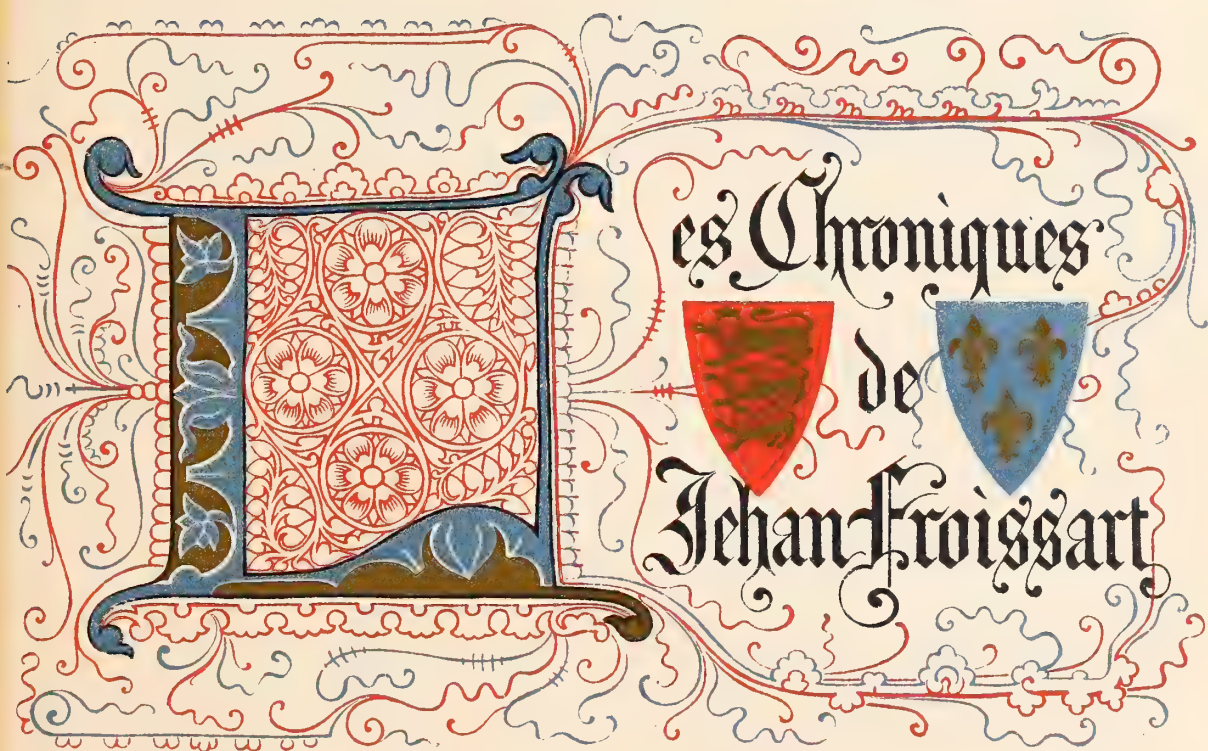 Les Chroniques
de
Jehan Froissart